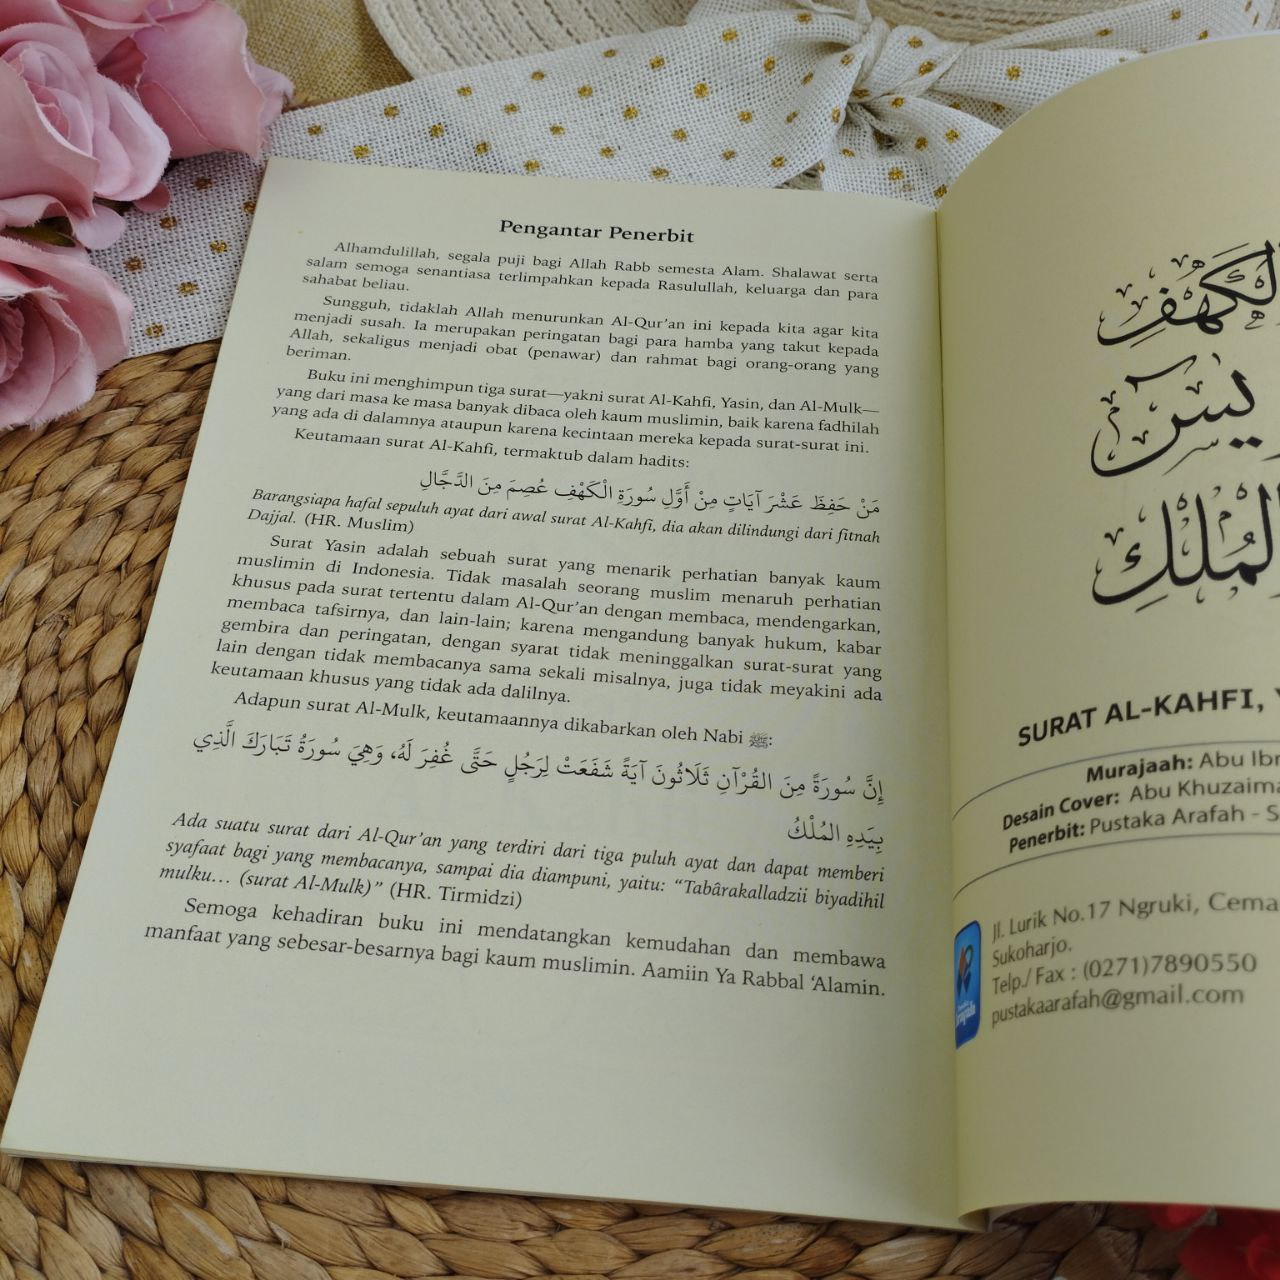 Pengantar Penerbit
Alhamdulillah, segala puji bagi Allah Rabb semesta Alam. Shalawat serta
salam semoga senantiasa terlimpahkan kepada Rasulullah, keluarga dan para
sahabat beliau.
Sungguh, tidaklah Allah menurunkan Al-Qur'an ini kepada kita agar kita
menjadi susah. Ia merupakan peringatan bagi para hamba yang takut kepada
Allah, sekaligus menjadi obat (penawar) dan rahmat bagi orang-orang yang
beriman.
Buku ini menghimpun tiga surat—yakni surat Al-Kahfi, Yasin, dan Al-Mulk—
yang dari masa ke masa banyak dibaca oleh kaum muslimin, baik karena fadhilah
yang ada di dalamnya ataupun karena kecintaan mereka kepada surat-surat ini.
Keutamaan surat Al-Kahfi, termaktub dalam hadits:
مَنْ حَفِظَ عَشْرَ آيَاتٍ مِنْ أَوَّلِ سُورَةِ الْكَهْفِ عُصِمَ مِنَ الدَّجَّالِ
Barangsiapa hafal sepuluh ayat dari awal surat Al-Kahfi, dia akan dilindungi dari fitnah
Dajjal. (HR. Muslim)
Surat Yasin adalah sebuah surat yang menarik perhatian banyak kaum
muslimin di Indonesia. Tidak masalah seorang muslim menaruh perhatian
khusus pada surat tertentu dalam Al-Qur'an dengan membaca, mendengarkan,
membaca tafsirnya, dan lain-lain; karena mengandung banyak hukum, kabar
gembira dan peringatan, dengan syarat tidak meninggalkan surat-surat yang
lain dengan tidak membacanya sama sekali misalnya, juga tidak meyakini ada
keutamaan khusus yang tidak ada dalilnya.
Adapun surat Al-Mulk, keutamaannya dikabarkan oleh Nabi ﷺ:
إِنَّ سُورَةً مِنَ الْقُرْآنِ ثَلَاثُونَ آيَةً شَفَعَتْ لِرَجُلٍ حَتَّى غُفِرَ لَهُ، وَهِيَ سُورَةُ تَبَارَكَ الَّذِي
بِيَدِهِ الْمُلْكُ
Ada suatu surat dari Al-Qur'an yang terdiri dari tiga puluh ayat dan dapat memberi
syafaat bagi yang membacanya, sampai dia diampuni, yaitu: “Tabârakalladzii biyadihil
mulku… (surat Al-Mulk)” (HR. Tirmidzi)
Semoga kehadiran buku ini mendatangkan kemudahan dan membawa
manfaat yang sebesar-besarnya bagi kaum muslimin. Aamiin Ya Rabbal ‘Alamin.
الْكَهْفِ
يس
الْمُلْكِ
SURAT AL-KAHFI,
Murajaah: Abu
Desain Cover: Abu Khuzaima
Penerbit: Pustaka Arafah -
Jl. Lurik No.17 Ngruki,
Sukoharjo.
Telp./ Fax : (0271)7890550
pustakaarafah@gmail.com